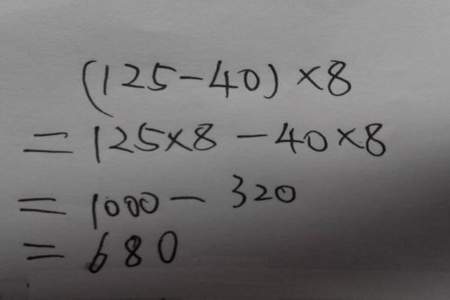 (125-40)×8
=125×8-40×8
=1000-320
=680